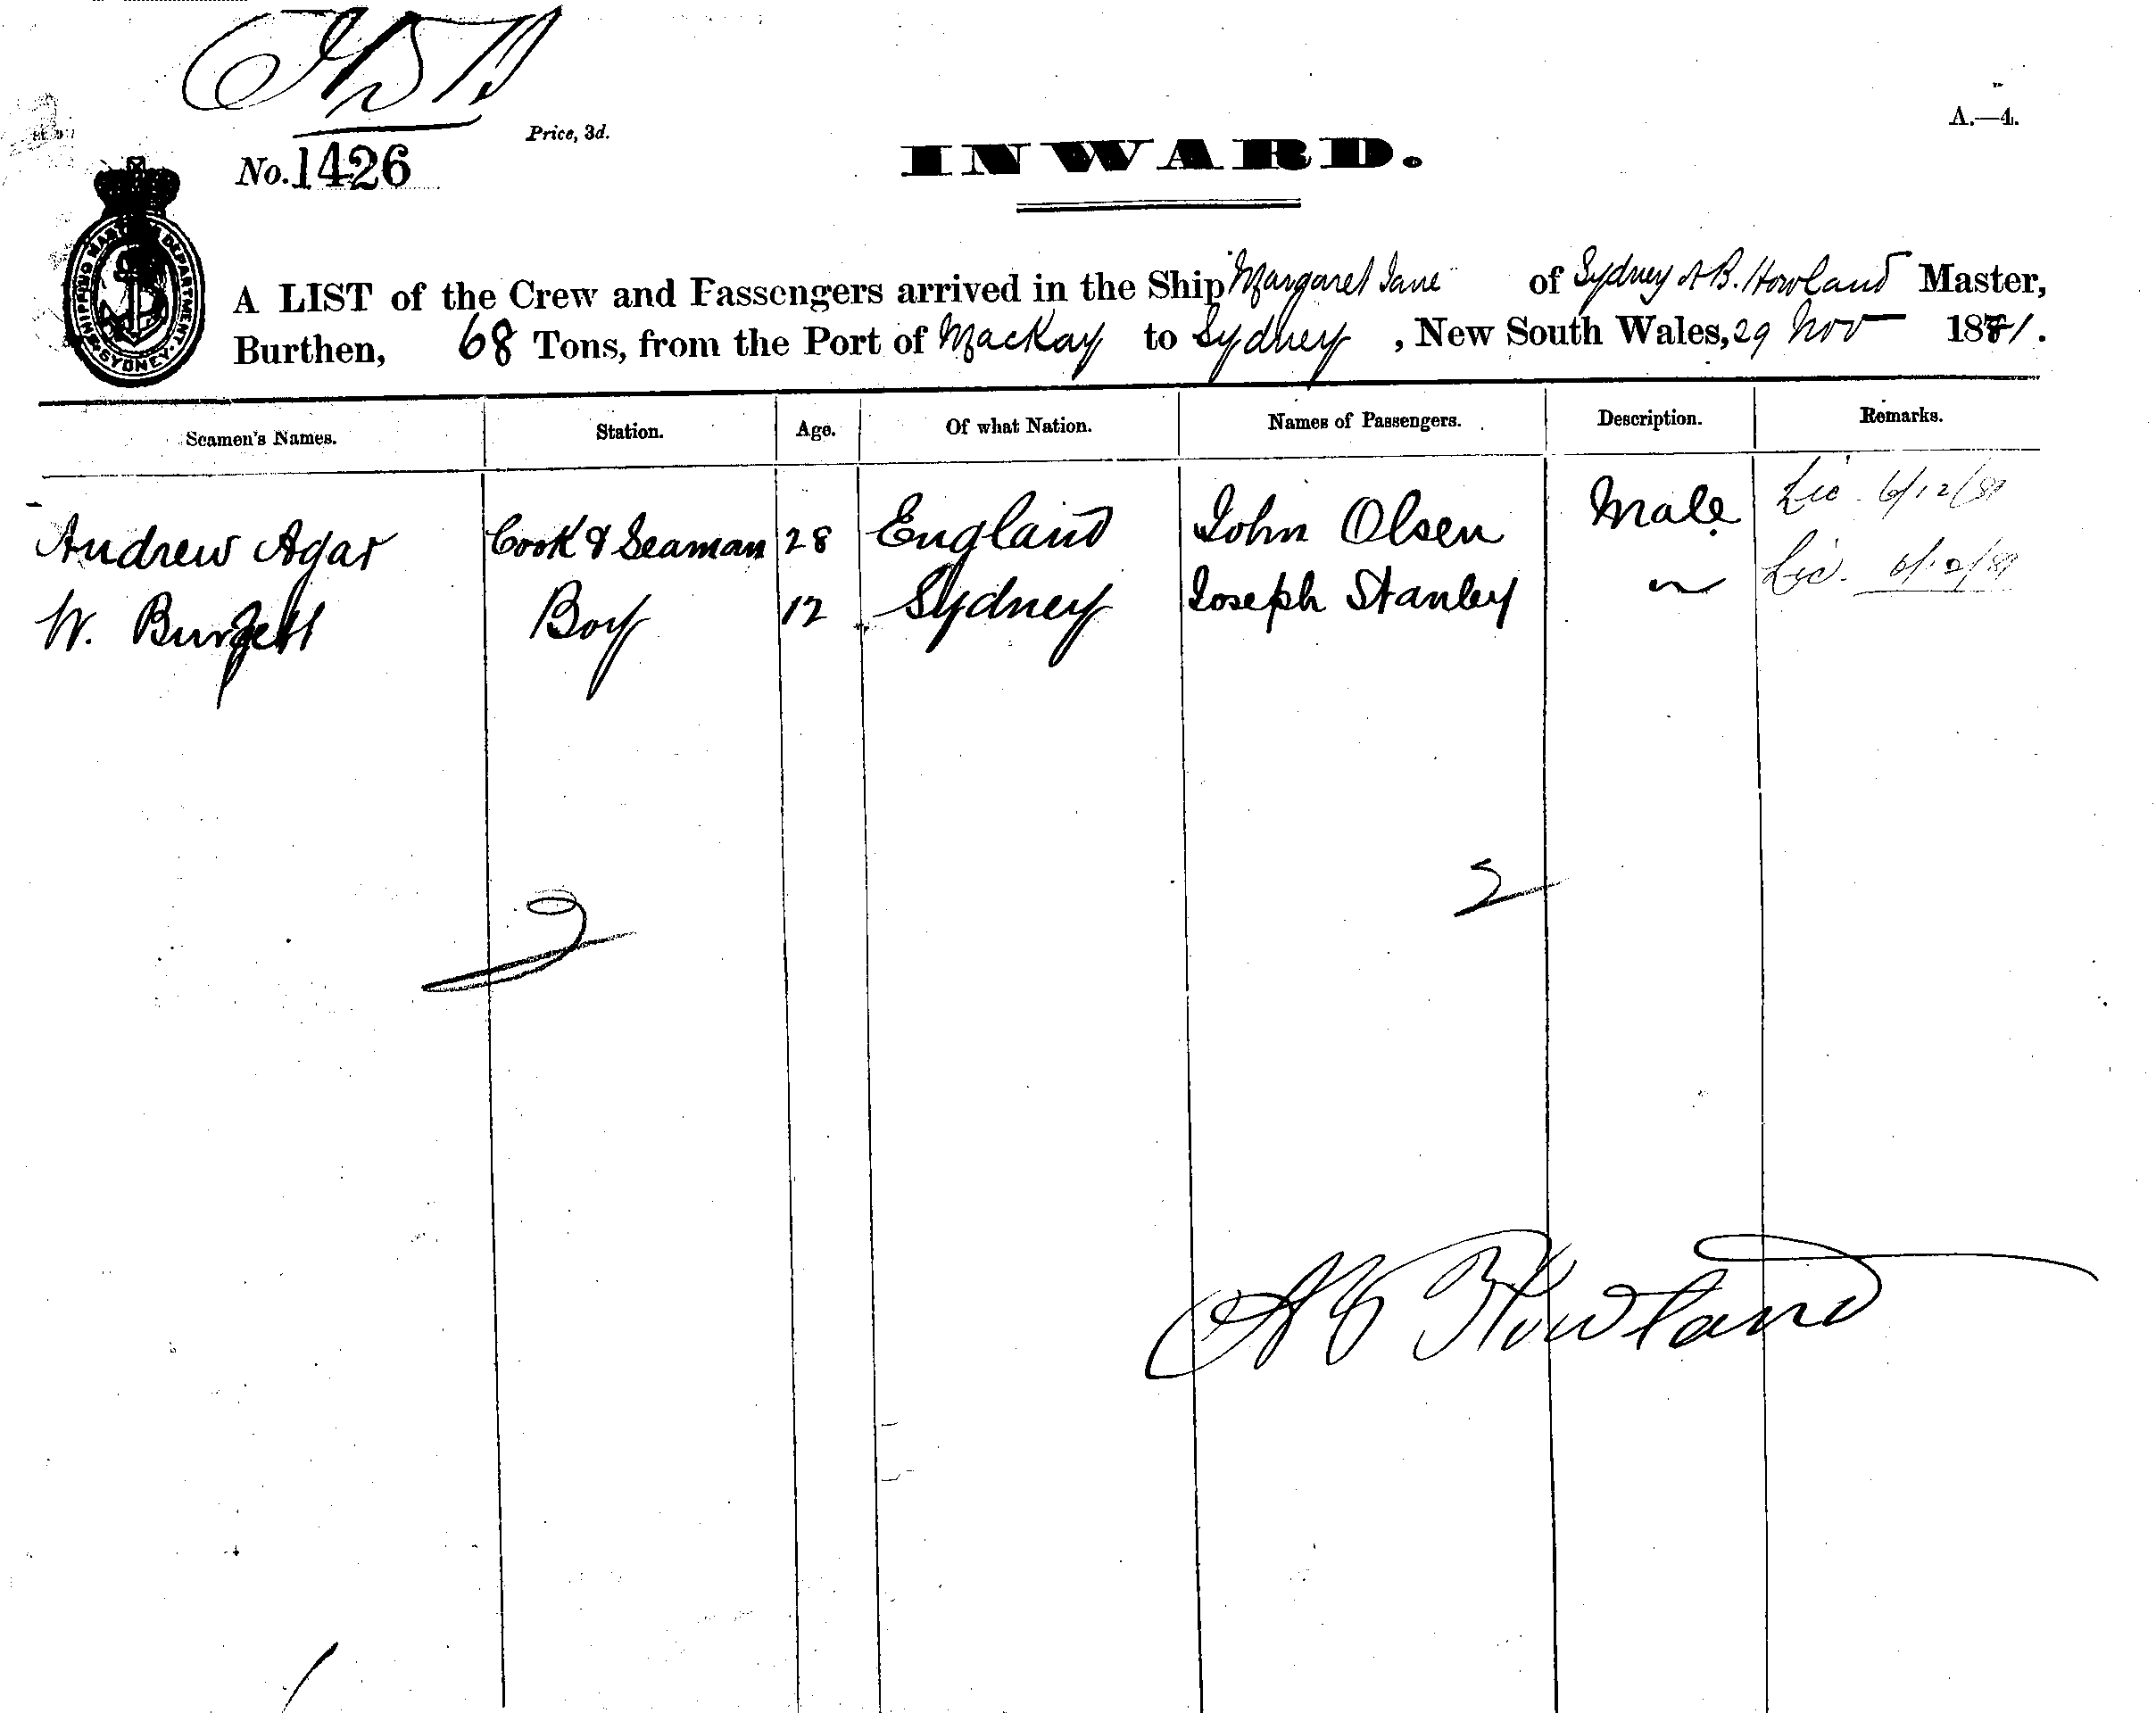 Price, 3d.
A.—4.
No. 1426
INWARD.
SHIPPING MASTER'S DEPARTMENT SYDNEY
A LIST of the Crew and Passengers arrived in the Ship Margaret Jane of Sydney A B. Howland Master,
Burthen, 68 Tons, from the Port of Mackay to Sydney, New South Wales, 29 Nov 1881.
Seamen's Names. Station. Age. Of what Nation. Names of Passengers. Description. Remarks.
Andrew Agar Cook & Seaman 28 England John Olsen Male Lic. 6/12/81
W. Burgett Boy 12 Sydney Joseph Stanley " Lic. 6/12/81
2
2
A B Howland